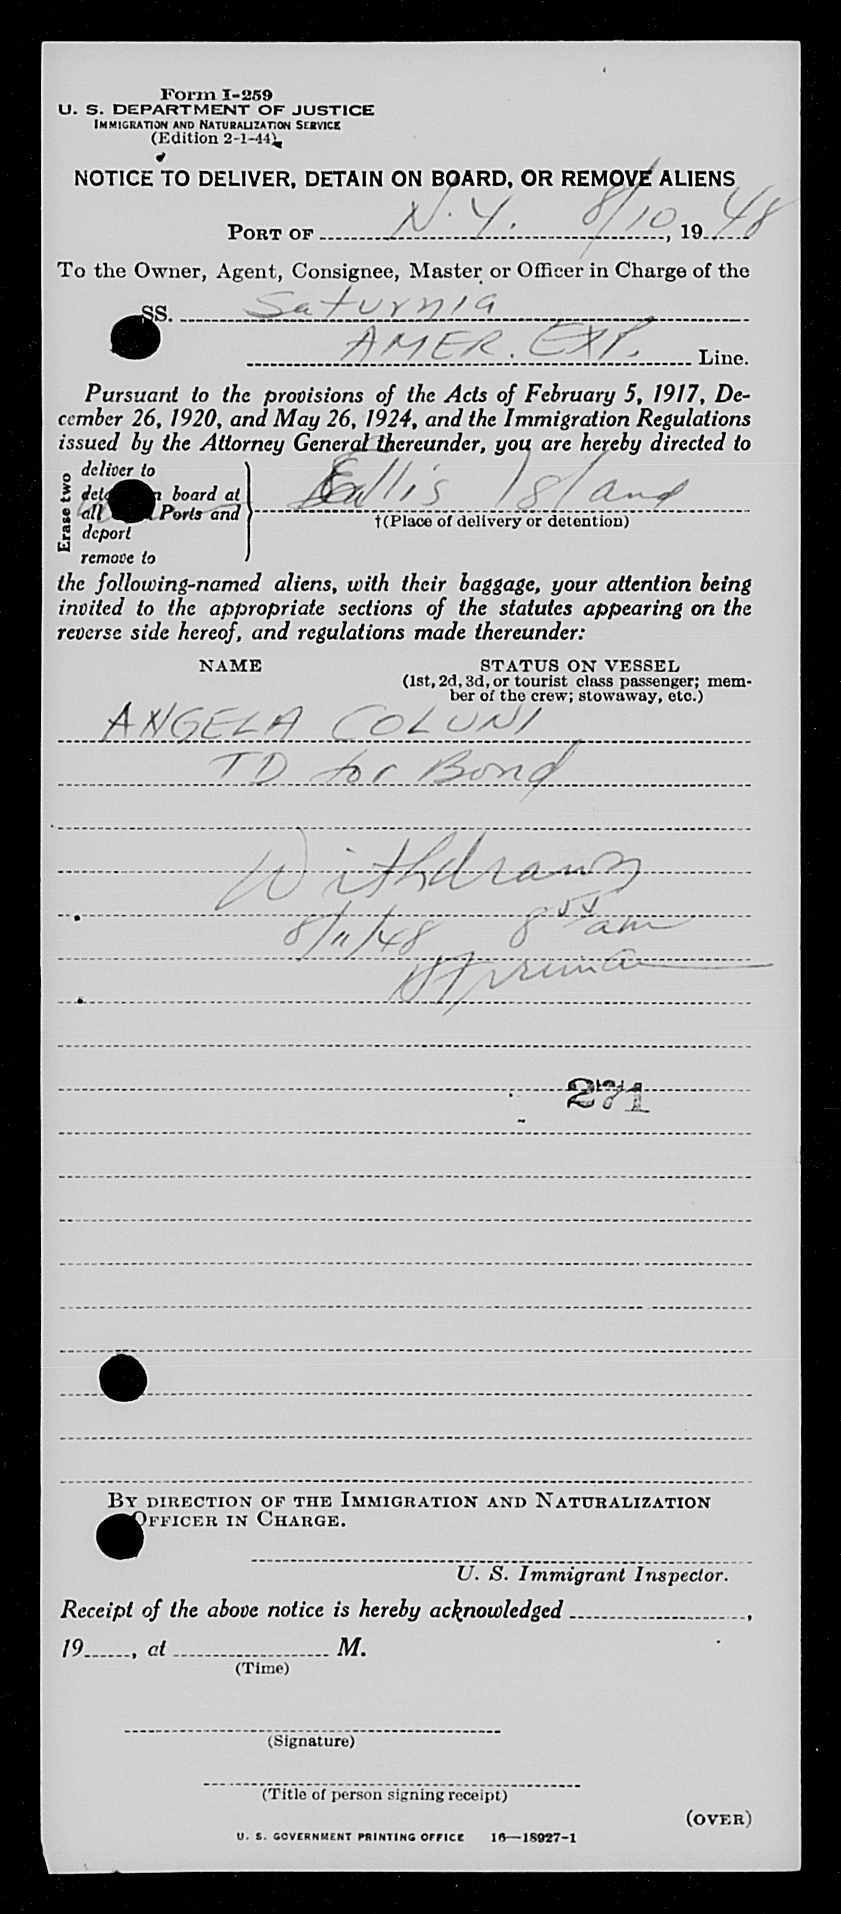 Form I-259
U. S. DEPARTMENT OF JUSTICE
IMMIGRATION AND NATURALIZATION SERVICE
(Edition 2-1-44)
NOTICE TO DELIVER, DETAIN ON BOARD, OR REMOVE ALIENS
PORT OF N.Y. 8/10, 1948
To the Owner, Agent, Consignee, Master or Officer in Charge of the
SS. Saturnia
AMER. EXP. Line.
Pursuant to the provisions of the Acts of February 5, 1917, De-
cember 26, 1920, and May 26, 1924, and the Immigration Regulations
issued by the Attorney General thereunder, you are hereby directed to
Erase two
deliver to
board at
all Ports and
deport
remove to
Ellis Island
†(Place of delivery or detention)
the following-named aliens, with their baggage, your attention being
invited to the appropriate sections of the statutes appearing on the
reverse side hereof, and regulations made thereunder:
NAME STATUS ON VESSEL
(1st, 2d, 3d, or tourist class passenger; mem-
ber of the crew; stowaway, etc.)
ANGELA COLUNI
TD for Bond
Withdrawn
8/11/48 8 55 am
271
BY DIRECTION OF THE IMMIGRATION AND NATURALIZATION
OFFICER IN CHARGE.
U. S. Immigrant Inspector.
Receipt of the above notice is hereby acknowledged ,
19 , at M.
(Time)
(Signature)
(Title of person signing receipt)
(OVER)
U. S. GOVERNMENT PRINTING OFFICE 16—18927-1